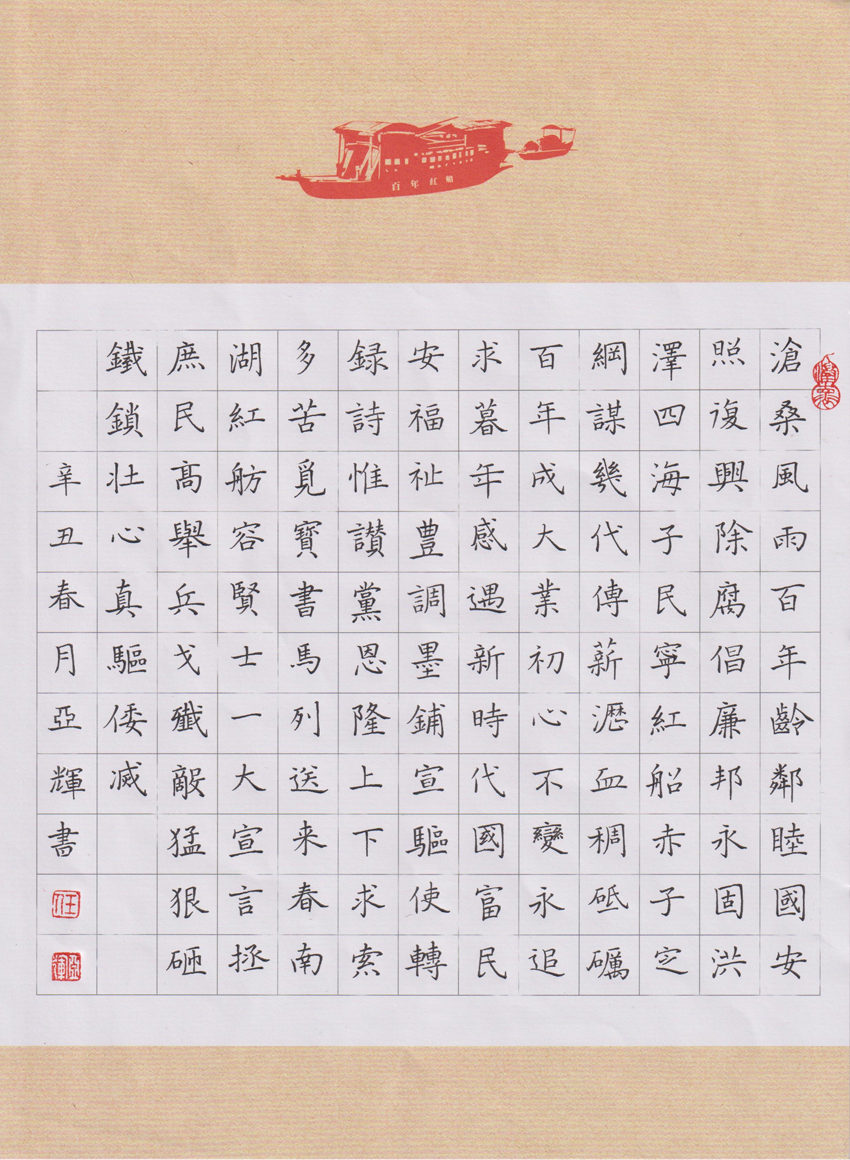 百年紅船
滄桑風雨百年齡鄰睦國安
照復興除腐倡廉邦永固洪
澤四海子民寧紅船赤子定
綱謀幾代傳薪瀝血稠砥礪
百年成大業初心不變永追
求暮年感遇新時代國富民
安福祉豊調墨鋪宣驅使轉
録詩惟讃黨恩隆上下求索
多苦覓寶書馬列送来春南
湖紅舫容賢士一大宣言拯
庶民高舉兵戈殲敵猛狠砸
鐵鎖壯心真驅倭滅
辛丑春月亞輝書